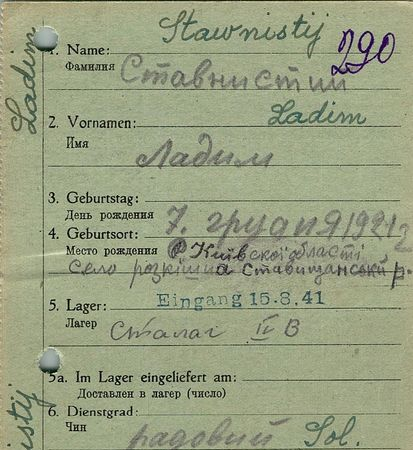 Stawnistij
1. Name:
Фамилия
Ставнистий
290
Ladim
2. Vornamen:
Ladim
Имя
Ладим
3. Geburtstag:
День рождения
7. грудня 1921
4. Geburtsort:
Место рождения
Київської області
село розкішна Ставищанський р.
5. Lager:
Eingang 15.8.41
Лагер
Сталаг II B
5a. Im Lager eingeliefert am:
Доставлен в лагер (число)
6. Dienstgrad:
Чин
радовий
Sol.